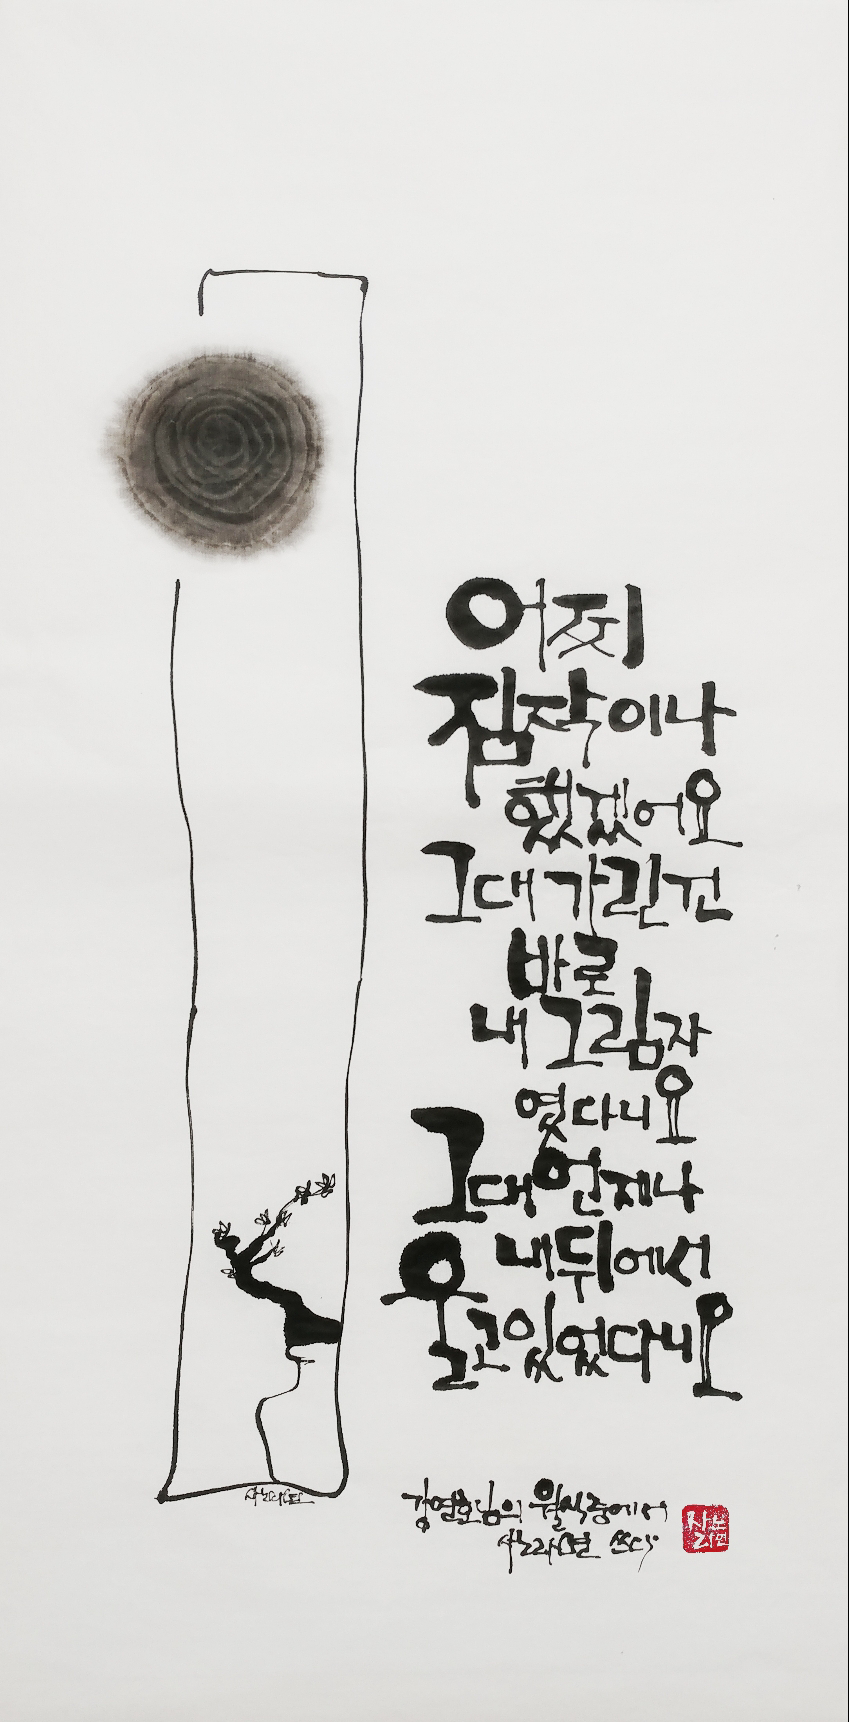 어찌
짐작이나
했겠어요
그대 가린 건
바로
내 그림자
였다니요
그대 언제나
내 뒤에서
울고 있었다니요
강연호님의 월식 중에서
쓰다